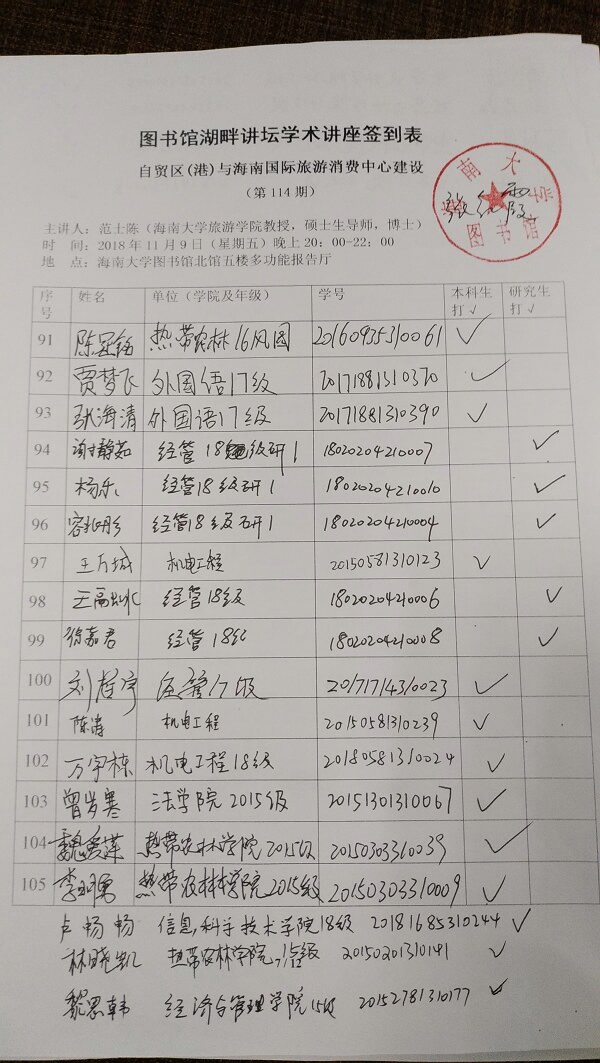 图书馆湖畔讲坛学术讲座签到表
自贸区(港)与海南国际旅游消费中心建设
(第114期)
南 大
图书馆
主讲人:范士陈(海南大学旅游学院教授,硕士生导师,博士)
时 间:2018年11月9日(星期五)晚上20:00-22:00
地 点:海南大学图书馆北馆五楼多功能报告厅
序号 姓名 单位(学院及年级) 学号 本科生打√ 研究生打√
91 热带农林16风园 20160935310061 √
92 贾梦飞 外国语17级 20171881310370 √
93 张海清 外国语17级 20171881310390 √
94 谢静茹 经管18级研1 18020204210007 √
95 杨乐 经管18级研1 18020204210010 √
96 经管18级研1 18020204210004 √
97 王万城 机电工程 20150581310123 √
98 经管18级 18020204210006 √
99 徐嘉君 经管18级 18020204210008 √
100 刘哲宇 17级 20171714310023 √
101 陈涛 机电工程 20150581310239 √
102 万宇栋 机电工程18级 20180581310024 √
103 曾岁寒 法学院2015级 20151301310067 √
104 魏爱莲 热带农林学院2015级 20150303310039 √
105 热带农林学院2015级 20150303310009 √
卢畅畅 信息科学技术学院18级 20181685310244 √
林晓凯 热带农林学院 20150201310141 √
黎思韩 经济与管理学院15级 20152781310177 √